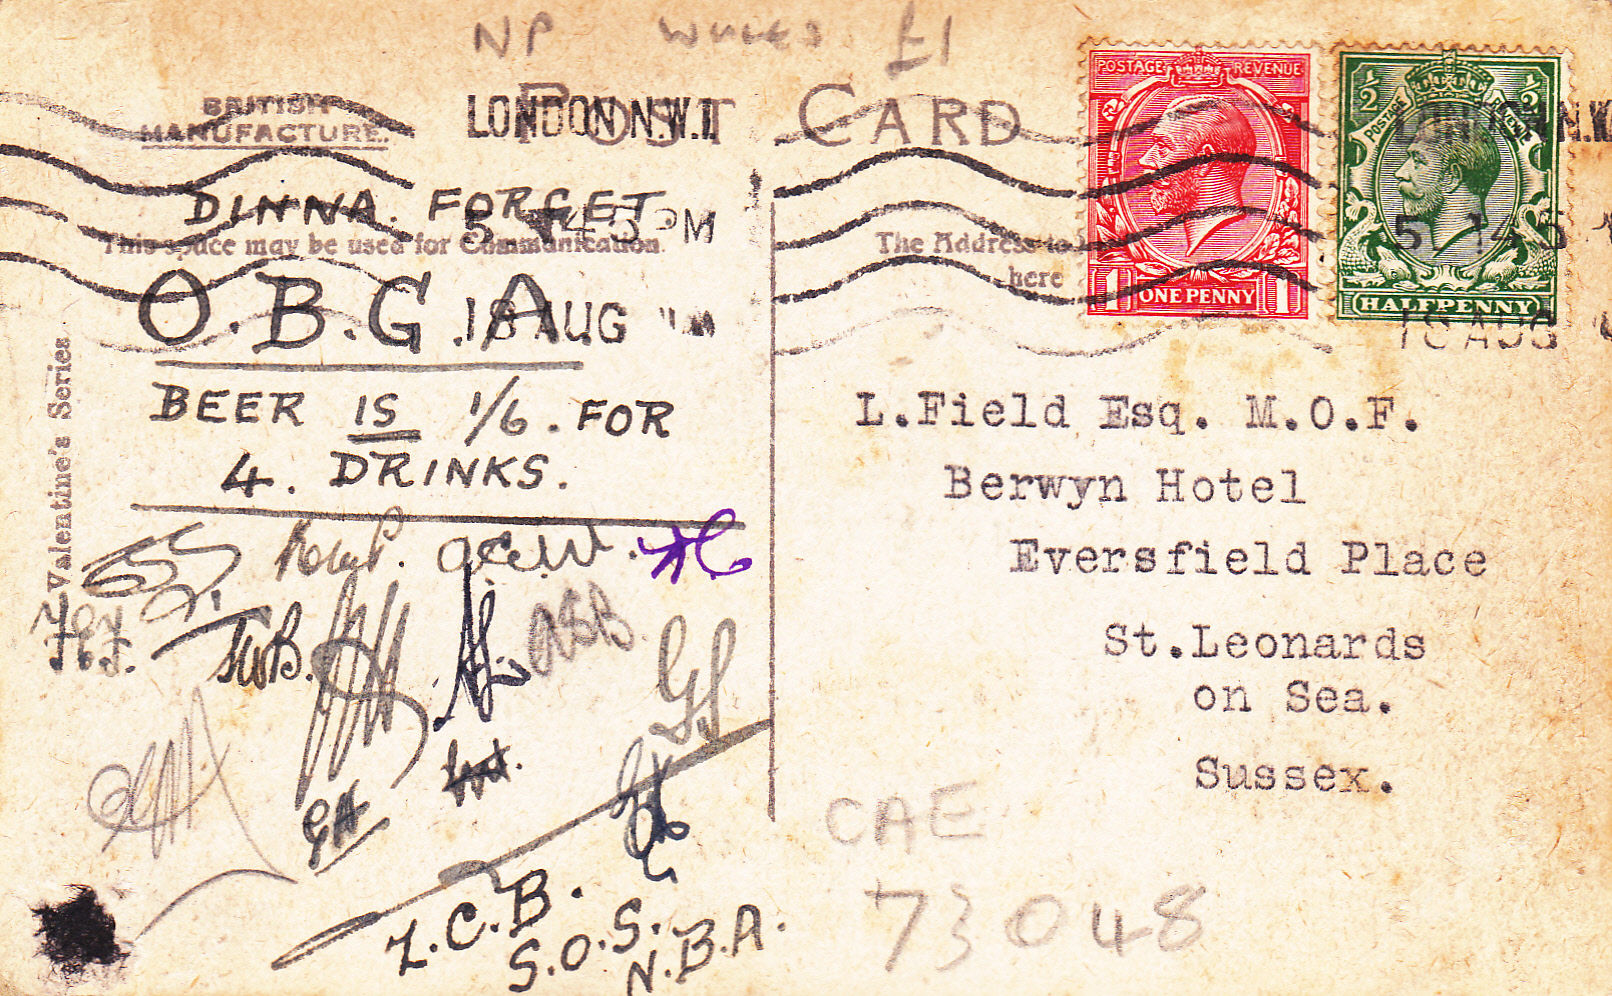 NP WALES £1
POST CARD
BRITISH
MANUFACTURE.
LONDON.N.W.1
5 45 PM
18 AUG
DINNA. FORGET
This space may be used for Communication.
O.B.G.A
BEER IS 1/6. FOR
4. DRINKS.
Valentine's Series
A.C.W.
TWB.
ASB.
GH
L.C.B.
S.O.S.
N.B.A.
The Address to
here
POSTAGE REVENUE
1 ONE PENNY 1
½ ½
POSTAGE REVENUE
HALFPENNY
LONDON N.W
5 145
18 AUG
L.Field Esq. M.O.F.
Berwyn Hotel
Eversfield Place
St.Leonards
on Sea.
Sussex.
CAE
73048